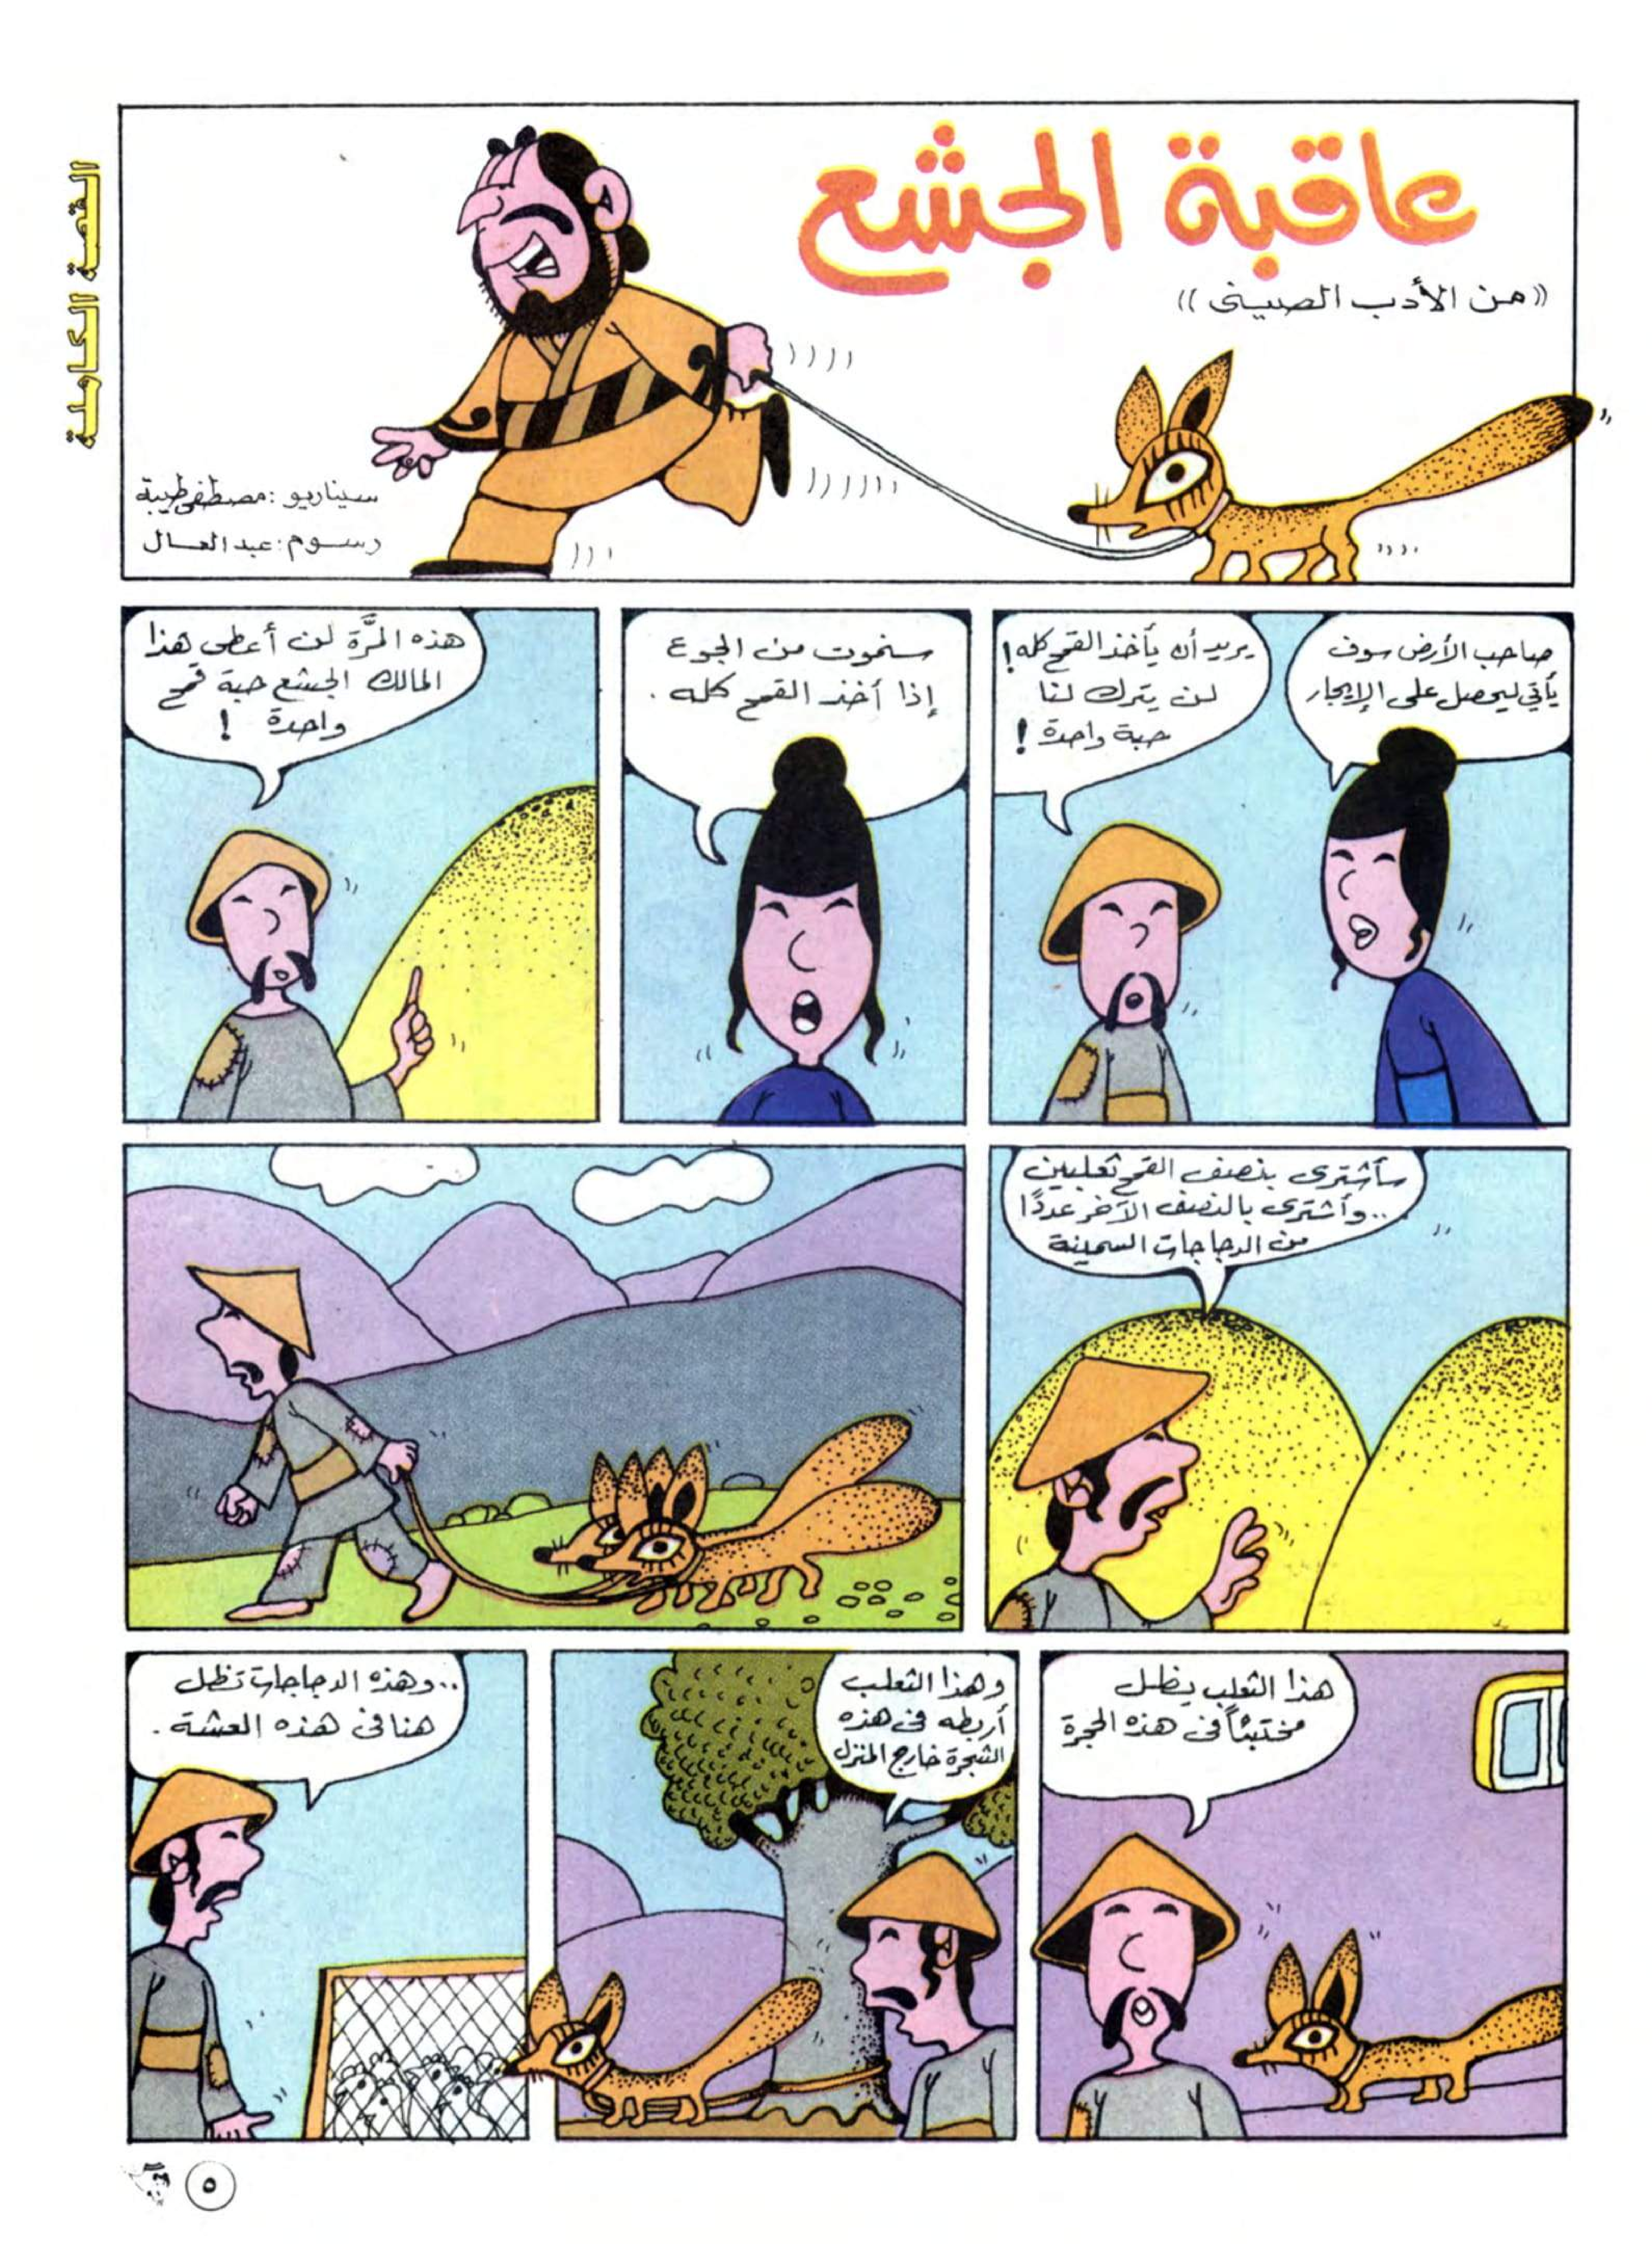 القصة الكاملة
عاقبة الجشع
((من الأدب الصينى))
سيناريو: مصطفى طيبة
رسوم: عبد العال
صاحب الأرض سوف
يأتى ليحصل على الإيجار
يريد أن يأخذ القمح كله!
لن يترك لنا
حبة واحدة!
سنموت من الجوع
إذا أخذ القمح كله.
هذه المرَّة لن أعطى هذا
المالك الجشع حبة قمح
واحدة!
سأشترى بنصف القمح ثعلبين
..وأشترى بالنصف الآخر عددًا
من الدجاجات السمينة
هذا الثعلب يظل
مختبئاً فى هذه الحجرة
وهذا الثعلب
أربطه فى هذه
الشجرة خارج المنزل
..وهذه الدجاجات تظل
هنا فى هذه العشة.
٥